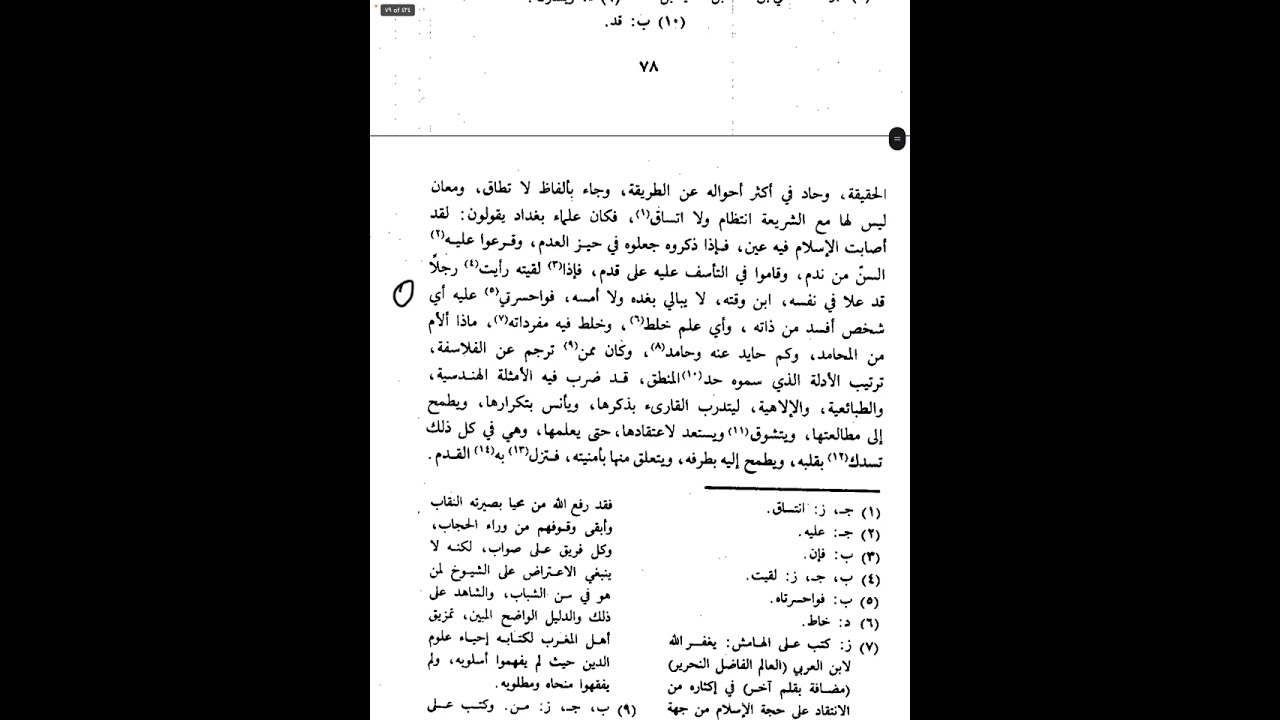 ٧٩ of ٤٢٤
(١٠) ب: قد.
٧٨
الحقيقة، وحاد في أكثر أحواله عن الطريقة، وجاء بألفاظ لا تطاق، ومعان
ليس لها مع الشريعة انتظام ولا اتساق(١)، فكان علماء بغداد يقولون: لقد
أصابت الإسلام فيه عين، فإذا ذكروه جعلوه في حيز العدم، وقرعوا عليه(٢)
السنّ من ندم، وقاموا في التأسف عليه على قدم، فإذا(٣) لقيته رأيت(٤) رجلاً
قد علا في نفسه، ابن وقته، لا يبالي بغده ولا أمسه، فواحسرتي(٥) عليه أي
شخص أفسد من ذاته، وأي علم خلط(٦)، وخلط فيه مفرداته(٧)، ماذا ألأم
من المحامد، وكم حايد عنه وحامد(٨)، وكان ممن(٩) ترجم عن الفلاسفة،
ترتيب الأدلة الذي سموه حد(١٠) المنطق، قد ضرب فيه الأمثلة الهندسية،
والطبائعية، والإلاهية، ليتدرب القارىء بذكرها، ويأنس بتكرارها، ويطمح
إلى مطالعتها، ويتشوق(١١) ويستعد لاعتقادها، حتى يعلمها، وهي في كل ذلك
تسدك(١٢) بقلبه، ويطمح إليه بطرفه، ويتعلق منها بأمنيته، فتزل(١٣) به(١٤) القدم.
(١) جـ، ز: انتساق.
(٢) جـ: عليه.
(٣) ب: فإن.
(٤) ب، جـ، ز: لقيت.
(٥) ب: فواحسرتاه.
(٦) د: خاط.
(٧) ز: كتب على الهامش: يغفر الله
لابن العربي (العالم الفاضل النحرير)
(مضافة بقلم آخر) في إكثاره من
الانتقاد على حجة الإسلام من جهة
فقد رفع الله من محيا بصيرته النقاب
وأبقى وقوفهم من وراء الحجاب،
وكل فريق على صواب، لكنه لا
ينبغي الاعتراض على الشيوخ لمن
هو في سن الشباب، والشاهد على
ذلك والدليل الواضح المبين، تمزيق
أهل المغرب لكتابه إحياء علوم
الدين حيث لم يفهموا أسلوبه، ولم
يفقهوا منحاه ومطلوبه.
(٩) ب، جـ، ز: من. وكتب على